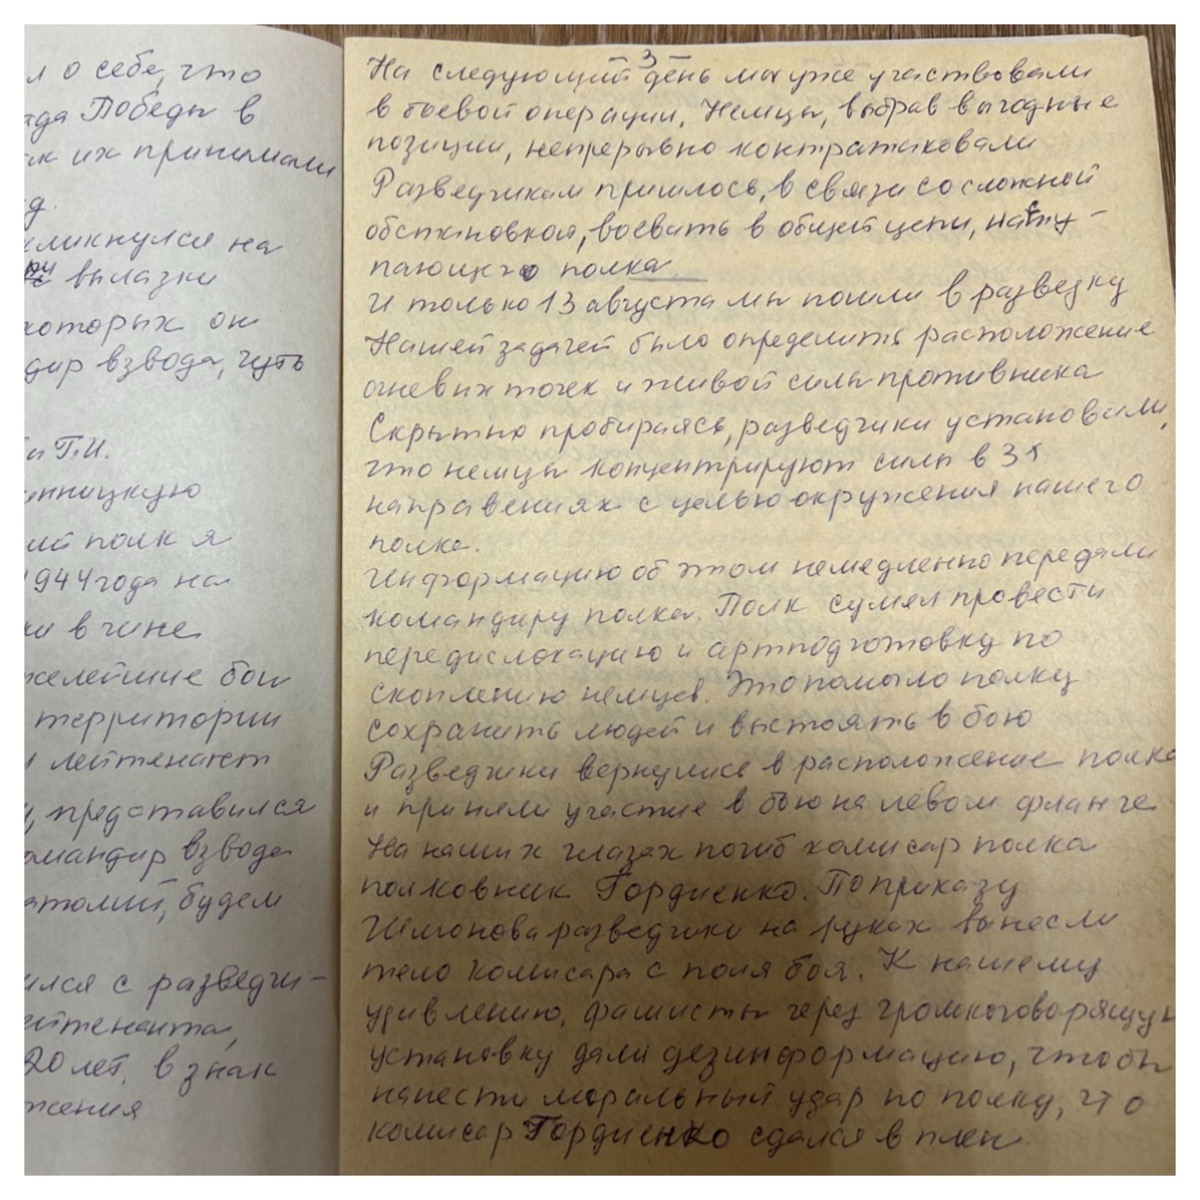 л о себе, что
ада Победы в
ак их принимали
д.
кликнулся на
ру вылазки
которых он
дир взвода, чуть
и Г.И.
инницкую
ий полк я
1944 года на
ки в чине
желейшие бои
территории
и лейтенант
у, представился
омандир взвода
атолий, будем
ился с разведчи-
ейтенанта,
20 лет, в знак
жения
- 3 -
На следующий день мы уже участвовали
в боевой операции. Немцы, выбрав выгодные
позиции, непрерывно контратаковали
Разведчикам пришлось, в связи со сложной
обстановкой, воевать в общей цепи, насту-
пающего полка
И только 13 августа мы пошли в разведку
Нашей задачей было определить расположение
огневых точек и живой силы противника
Скрытно пробираясь, разведчики установили,
что немцы концентрируют силы в 3х
направениях с целью окружения нашего
полка.
Информацию об этом немедленно передали
командиру полка. Полк сумел провести
передислокацию и артподготовку по
скоплению немцев. Это помогло полку
сохранить людей и выстоять в бою
Разведчики вернулись в расположение полка
и приняли участие в бою на левом фланге
На наших глазах погиб комисар полка
полковник Гордиенко. По приказу
Шимонова разведчики на руках вынесли
тело комисара с поля боя. К нашему
удивлению, фашисты через громкоговорящую
установку дали дезинформацию, чтобы
нанести моральный удар по полку, что
комисар Гордиенко сдался в плен